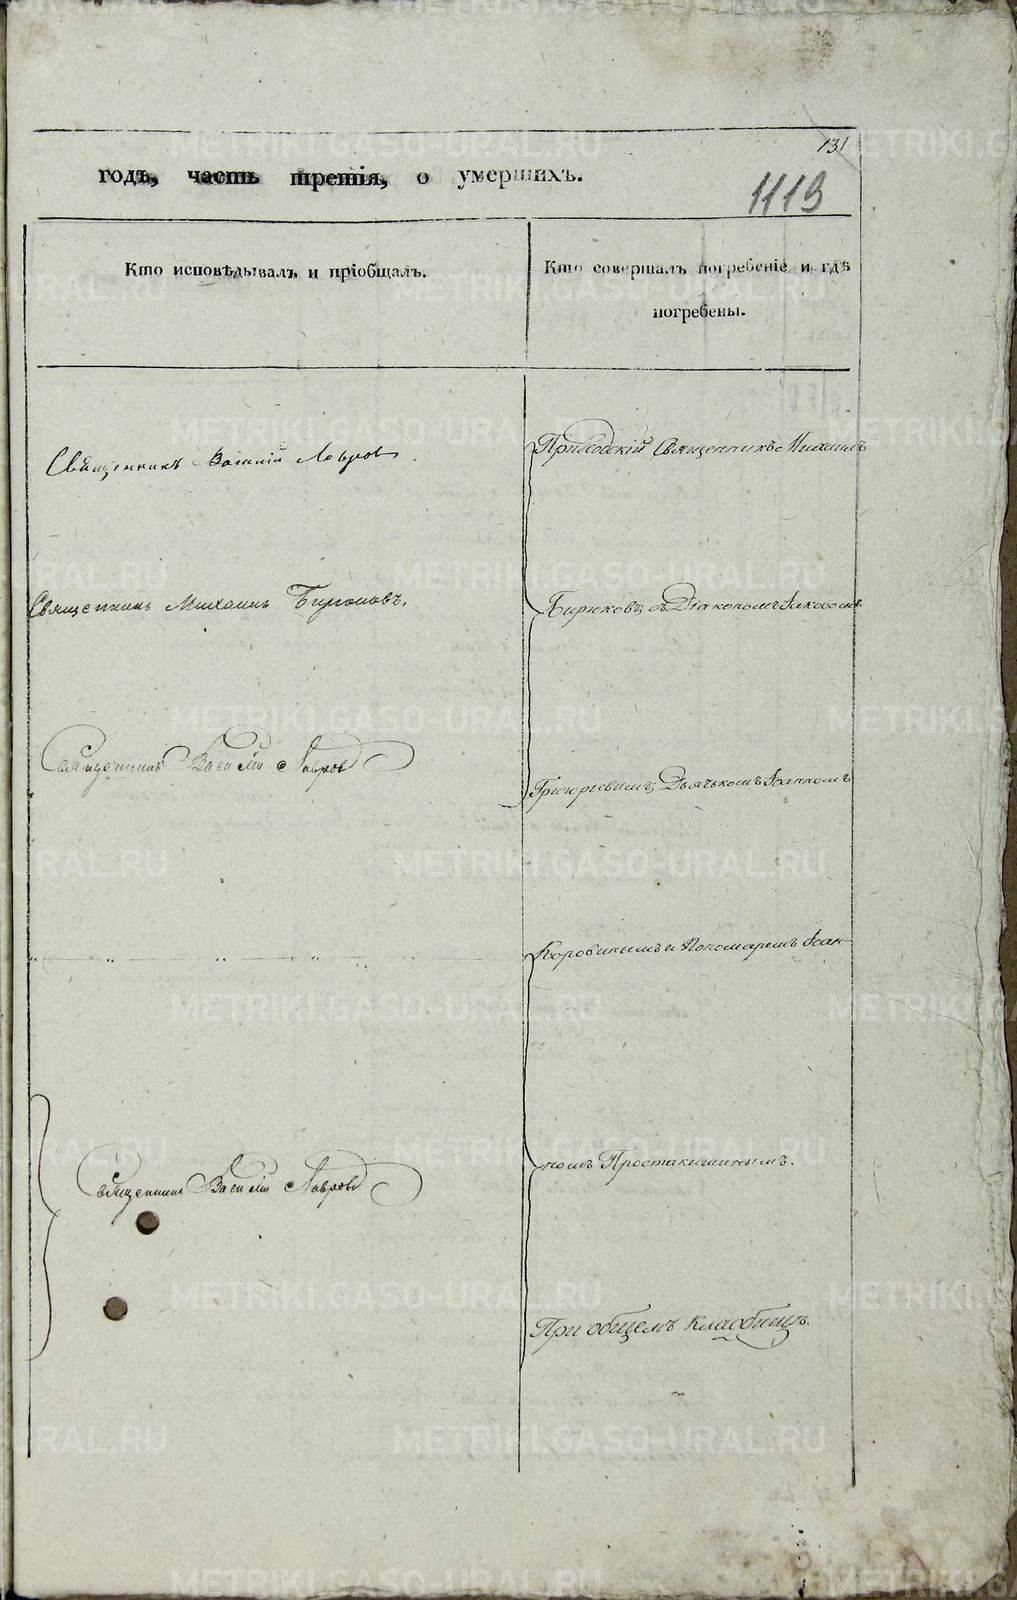 131
годъ, часть третія, о умершихъ.
1119
Кто исповѣдывалъ и пріобщалъ.
Кто совершалъ погребеніе и гдѣ
погребены.
Священникъ Василій Лавровъ
Приходскій Священникъ Михаилъ
Священникъ Михаилъ Бирюковъ.
Бирюковъ; съ Діакономъ Іаковомъ
Священникъ Василій Лавровъ
Григорьевымъ; Дьячькомъ Іоанномъ
" " " " "
Коровинымъ и Пономаремъ Іоан-
Священникъ Василій Лавровъ
номъ Простакишинымъ.
При общемъ кладбищѣ.
METRIKI.GASO-URAL.RU